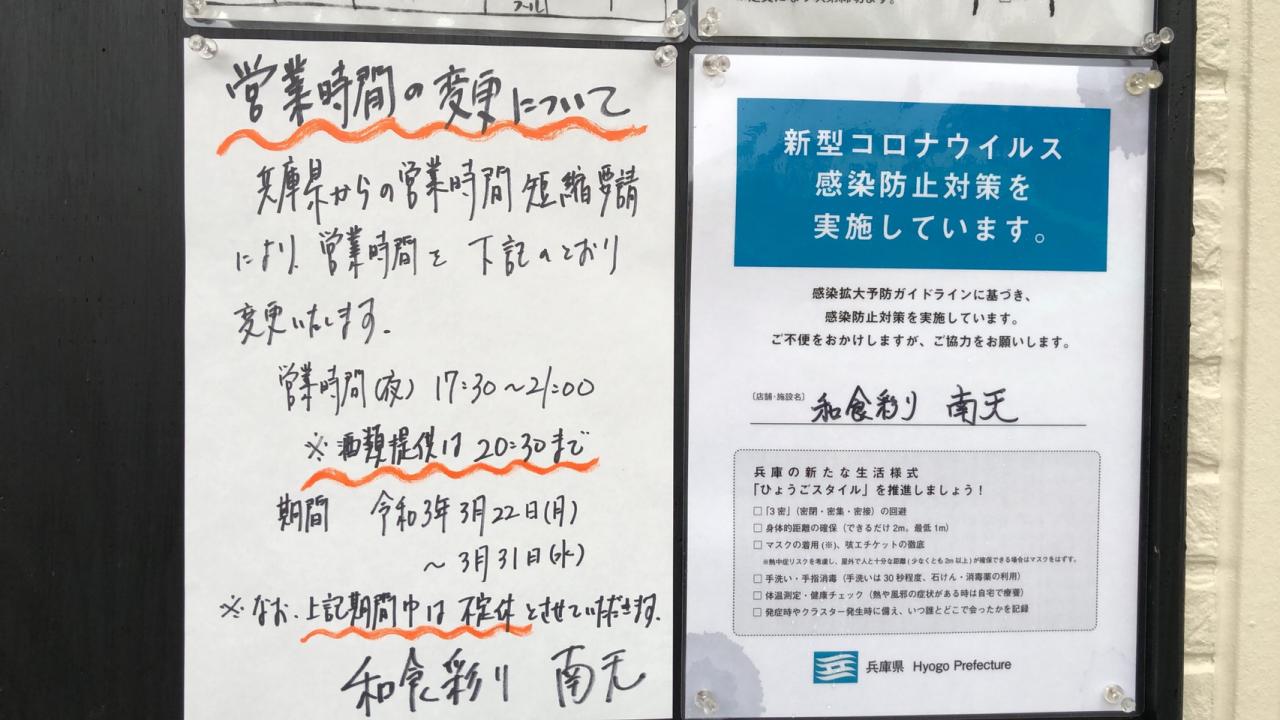 プール
営業時間の変更について
兵庫県からの営業時間短縮要請
により、営業時間を下記のとおり
変更いたします.
営業時間(夜) 17:30～21:00
※酒類提供は 20:30まで
期間 令和3年3月22日(月)
～3月31日(水)
※なお、上記期間中は不定休とさせていただきます.
和食彩り 南天
新型コロナウイルス
感染防止対策を
実施しています。
感染拡大予防ガイドラインに基づき、
感染防止対策を実施しています。
ご不便をおかけしますが、ご協力をお願いします。
［店舗・施設名］ 和食彩り 南天
兵庫の新たな生活様式
「ひょうごスタイル」を推進しましょう！
□「3密」（密閉・密集・密接）の回避
□身体的距離の確保（できるだけ2m。最低1m）
□マスクの着用(※)、咳エチケットの徹底
※熱中症リスクを考慮し、屋外で人と十分な距離(少なくとも2m以上)が確保できる場合はマスクをはずす。
□手洗い・手指消毒（手洗いは30秒程度、石けん・消毒薬の利用）
□体温測定・健康チェック（熱や風邪の症状がある時は自宅で療養）
□発症時やクラスター発生時に備え、いつ誰とどこで会ったかを記録
兵庫県 Hyogo Prefecture